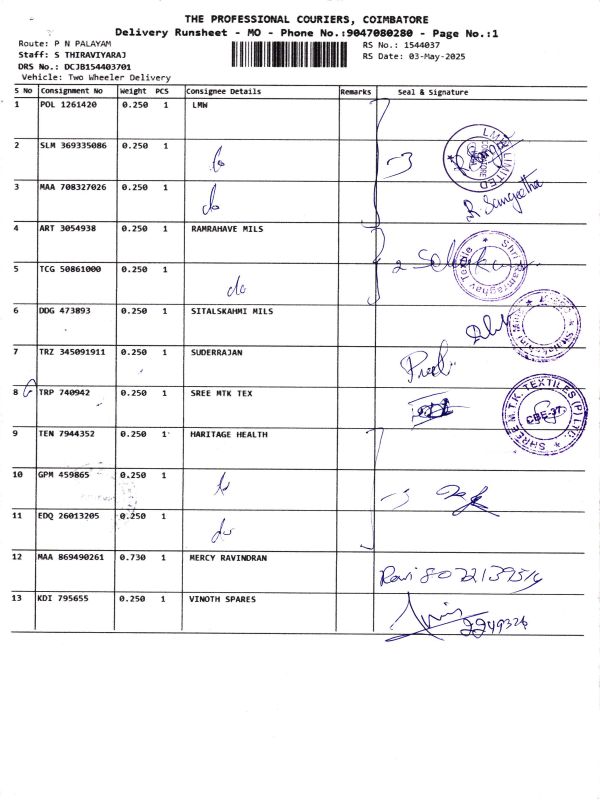 THE PROFESSIONAL COURIERS, COIMBATORE
Delivery Runsheet - MO - Phone No.:9047080280 - Page No.:1
Route: P N PALAYAM
RS No.: 1544037
Staff: S THIRAVIYARAJ
RS Date: 03-May-2025
DRS No.: DCJB154403701
Vehicle: Two Wheeler Delivery
S No Consignment No Weight PCS Consignee Details Remarks Seal & Signature
1 POL 1261420 0.250 1 LMW
2 SLM 369335086 0.250 1 do
LMW LIMITED
3 MAA 708327026 0.250 1 do
R. Sangeetha
4 ART 3054938 0.250 1 RAMRAHAVE MILS
5 TCG 50861000 0.250 1 do
2
6 DDG 473893 0.250 1 SITALSKAHMI MILS
7 TRZ 345091911 0.250 1 SUDERRAJAN
8 TRP 740942 0.250 1 SREE MTK TEX
SHREE M.T.K. TEXTILES (P) LTD.
CBE-37
9 TEN 7944352 0.250 1 HARITAGE HEALTH
10 GPM 459865 0.250 1 do
-3
11 EDQ 26013205 0.250 1 do
12 MAA 869490261 0.730 1 MERCY RAVINDRAN
Ravi
13 KDI 795655 0.250 1 VINOTH SPARES